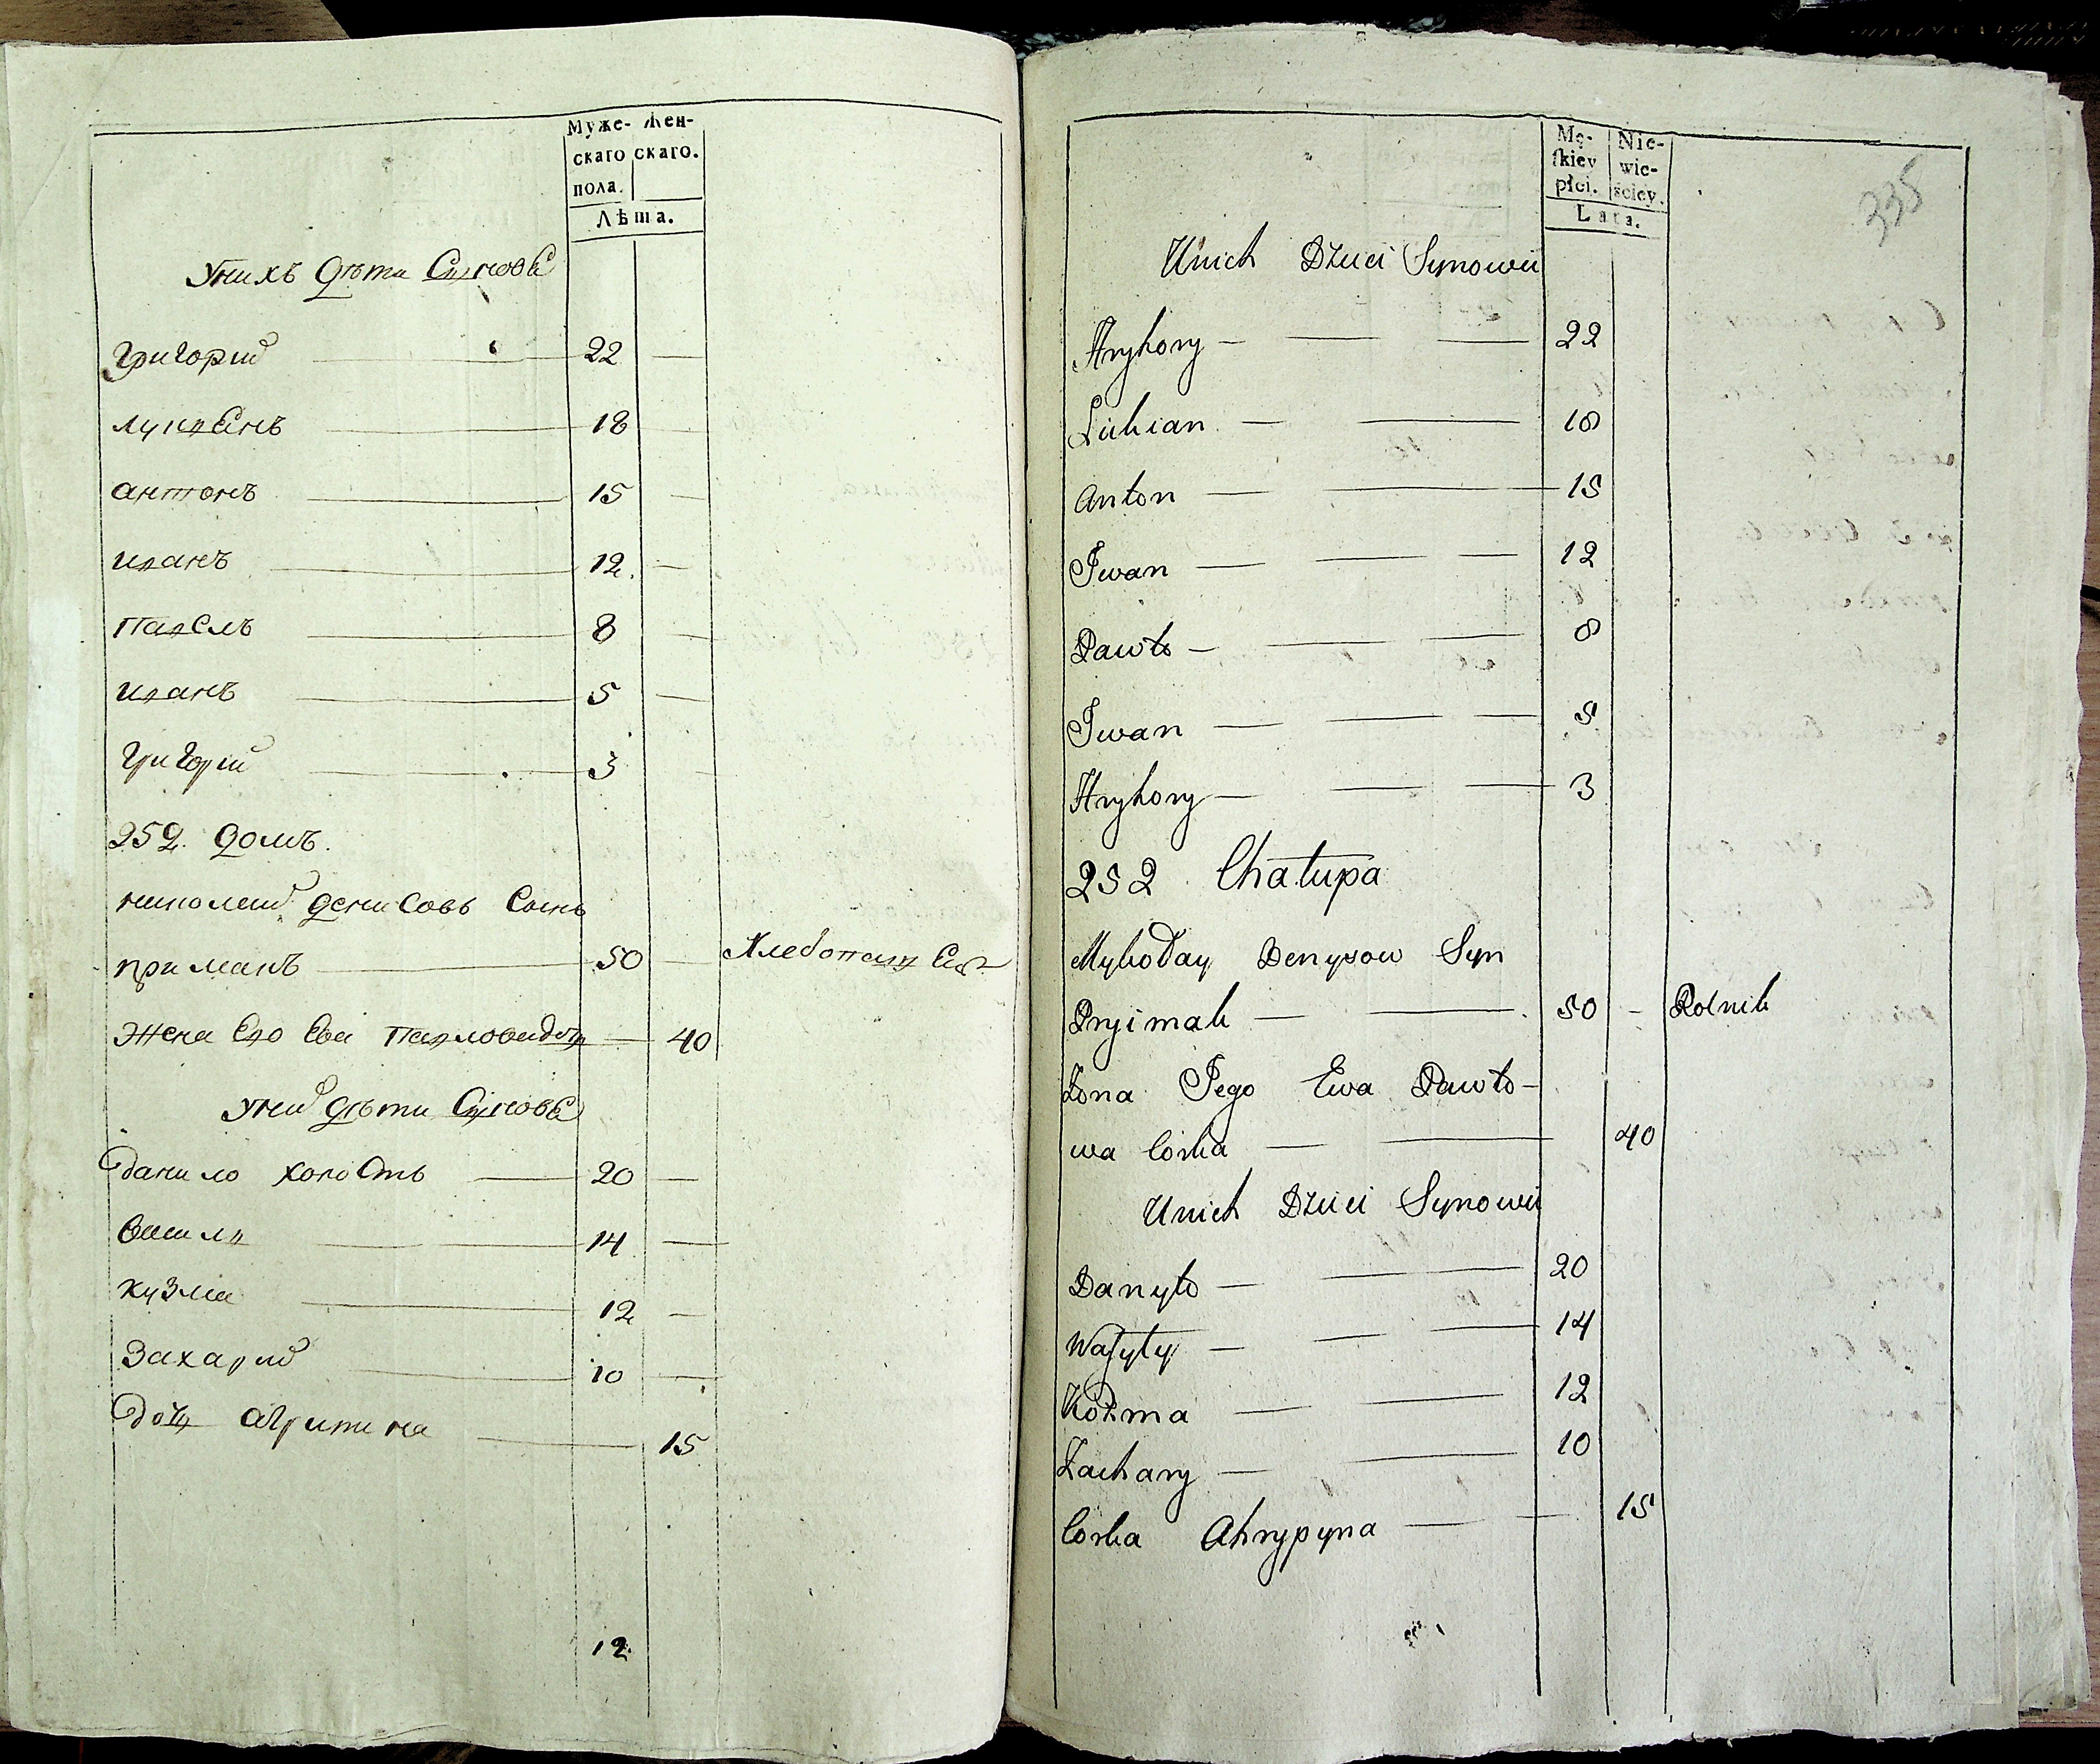 Муже- Жен-
скаго скаго.
пола.
Лѣта.
Унихъ дѣти Сынове
Григорий 22
лукиянъ 18
антонъ 15
иванъ 12.
Павелъ 8
иванъ 5
Григорий 3
252. домъ.
николай денисовъ Сынъ
примакъ 50 Хлебопашец
Жена Его Ева Павлова дочь 40
Уний дѣти Сынове
данило холостъ 20
Василь 14
кузма 12
Захарий 10
дочь агрипина 15
12
335
Mę- Nie-
skiey wie-
płci. ściey.
Lata.
Unich Dzieci Synowie
Hryhory 22
Łukian 18
Anton 15
Iwan 12
Pawło 8
Iwan 5
Hryhory 3
252 Chałupa
Mykołay Denysow Syn
Pryimak 50 Rolnik
Żona Jego Ewa Pawło-
wa Corka 40
Unich Dzieci Synowie
Danyło 20
Wasyly 14
Kozma 12
Zachary 10
Corka Ahrypyna 15